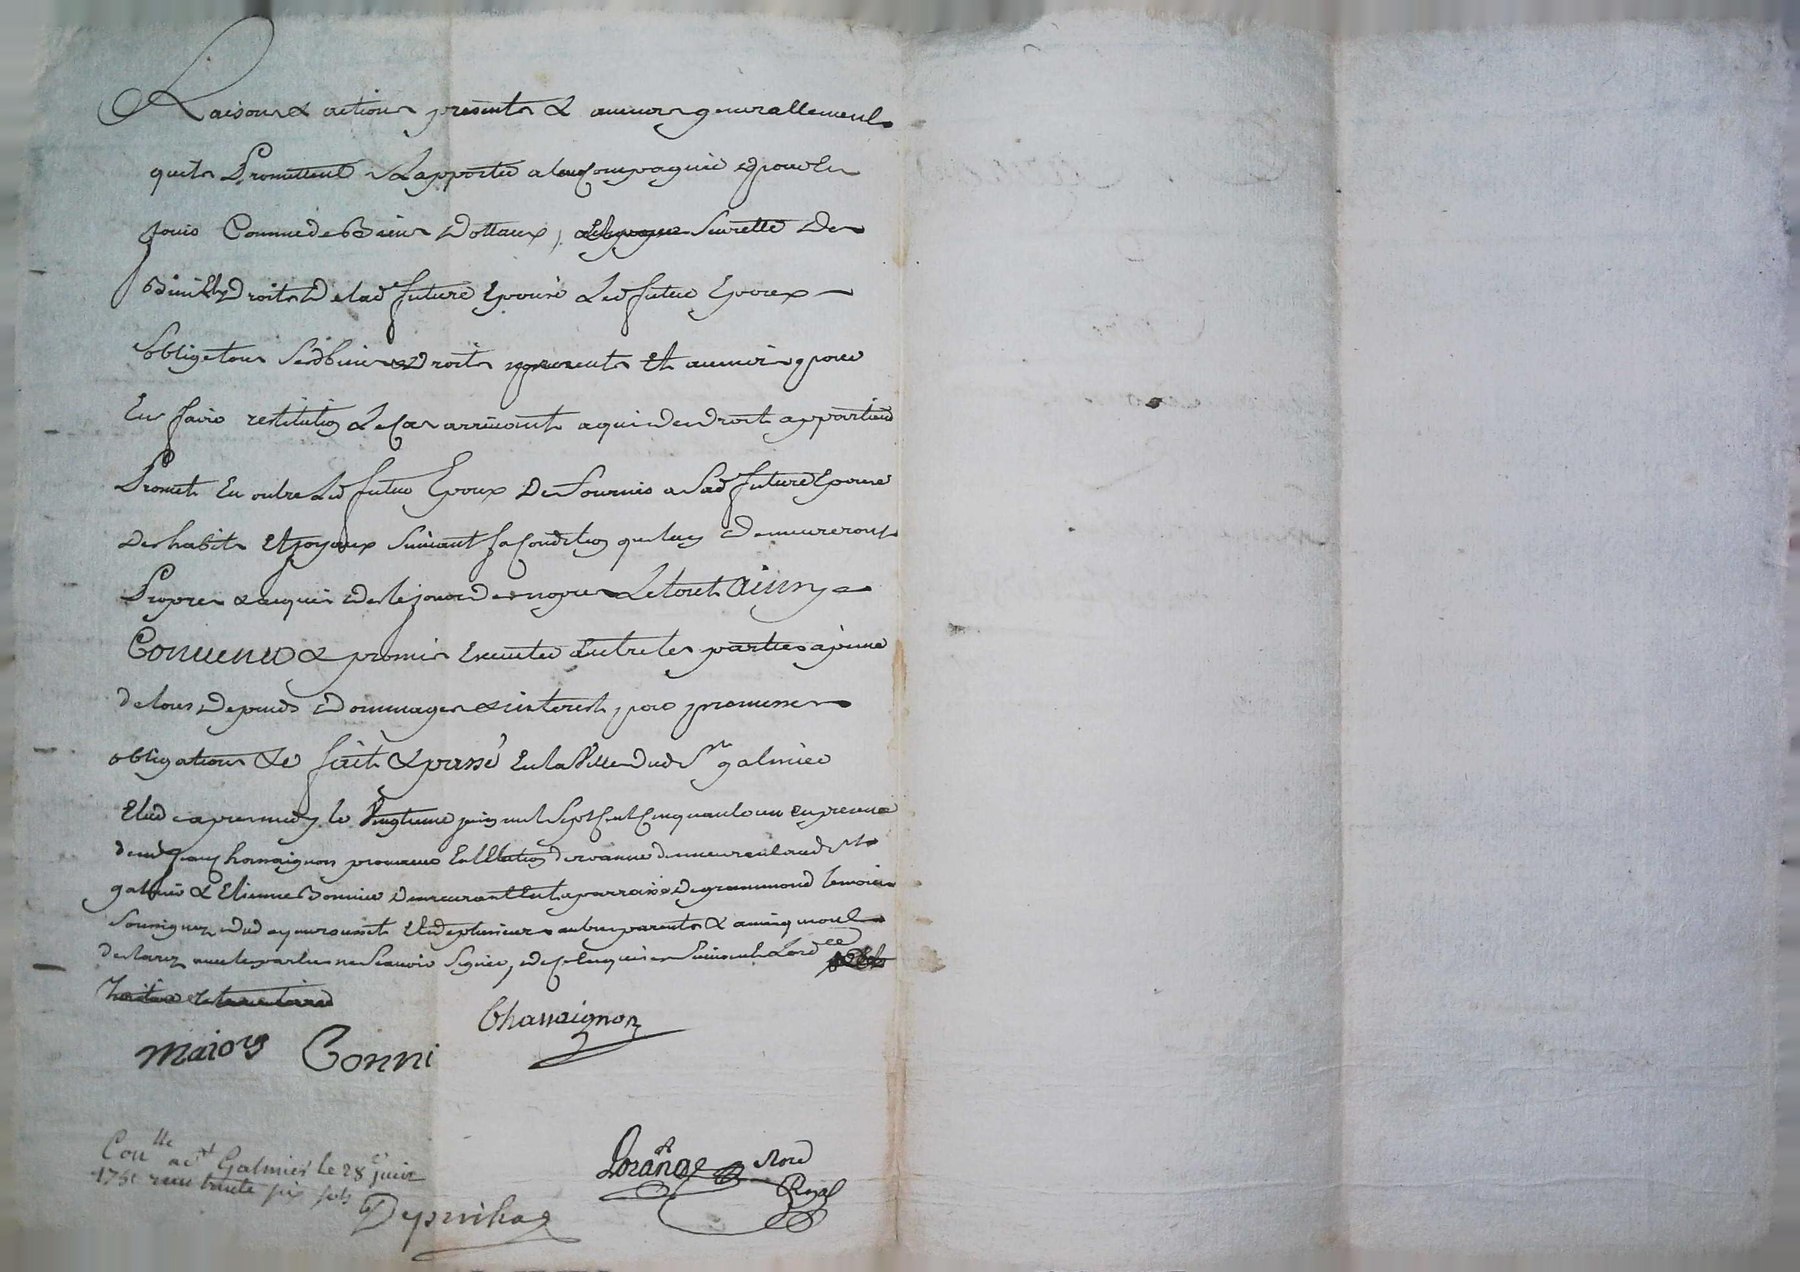 Raisons & actions presents & avenir generallement
quils Promettent d'apporter a leur Compagnie & pour les
jouir Comme de Biens Dottaux, Seurette des
Biens & Droits de lad future Epouse led futur Epoux
oblige tous sesd biens & Droits presents et avenir, pour
En faire restitution le Cas arrivant a qui de droit appartiend
Promet En outre led futur Epoux de fournir a Sad future Epouse
des habits Et joyaux suivant sa Condition que luy demeureront
Propres & acquis des le jour des nopces Le tout Ainsy
Convenu & promis Executer Entre les parties a peine
de tous depends dommages & interest, par promesses
obligations &c fait & passé En la Ville dud St galmier
Etude apres midy le Vingtieme juin mil Sept Cent Cinquante un en presence
de chassaignon praticien demeurant aud St
galmier & Etienne Bonnier demeurant En la parroisse de grammond temoins
Soussignez Et de plusieurs autres parents & amis qui ont
declarez avec les parties ne Scavoir Signer, de Ce Enquis & Suivant Lord ce
maiors Conni Chassaignon
Lorange Nore
Royal
Con lle a St Galmier le 28e juin
1751 reçu trente six sols